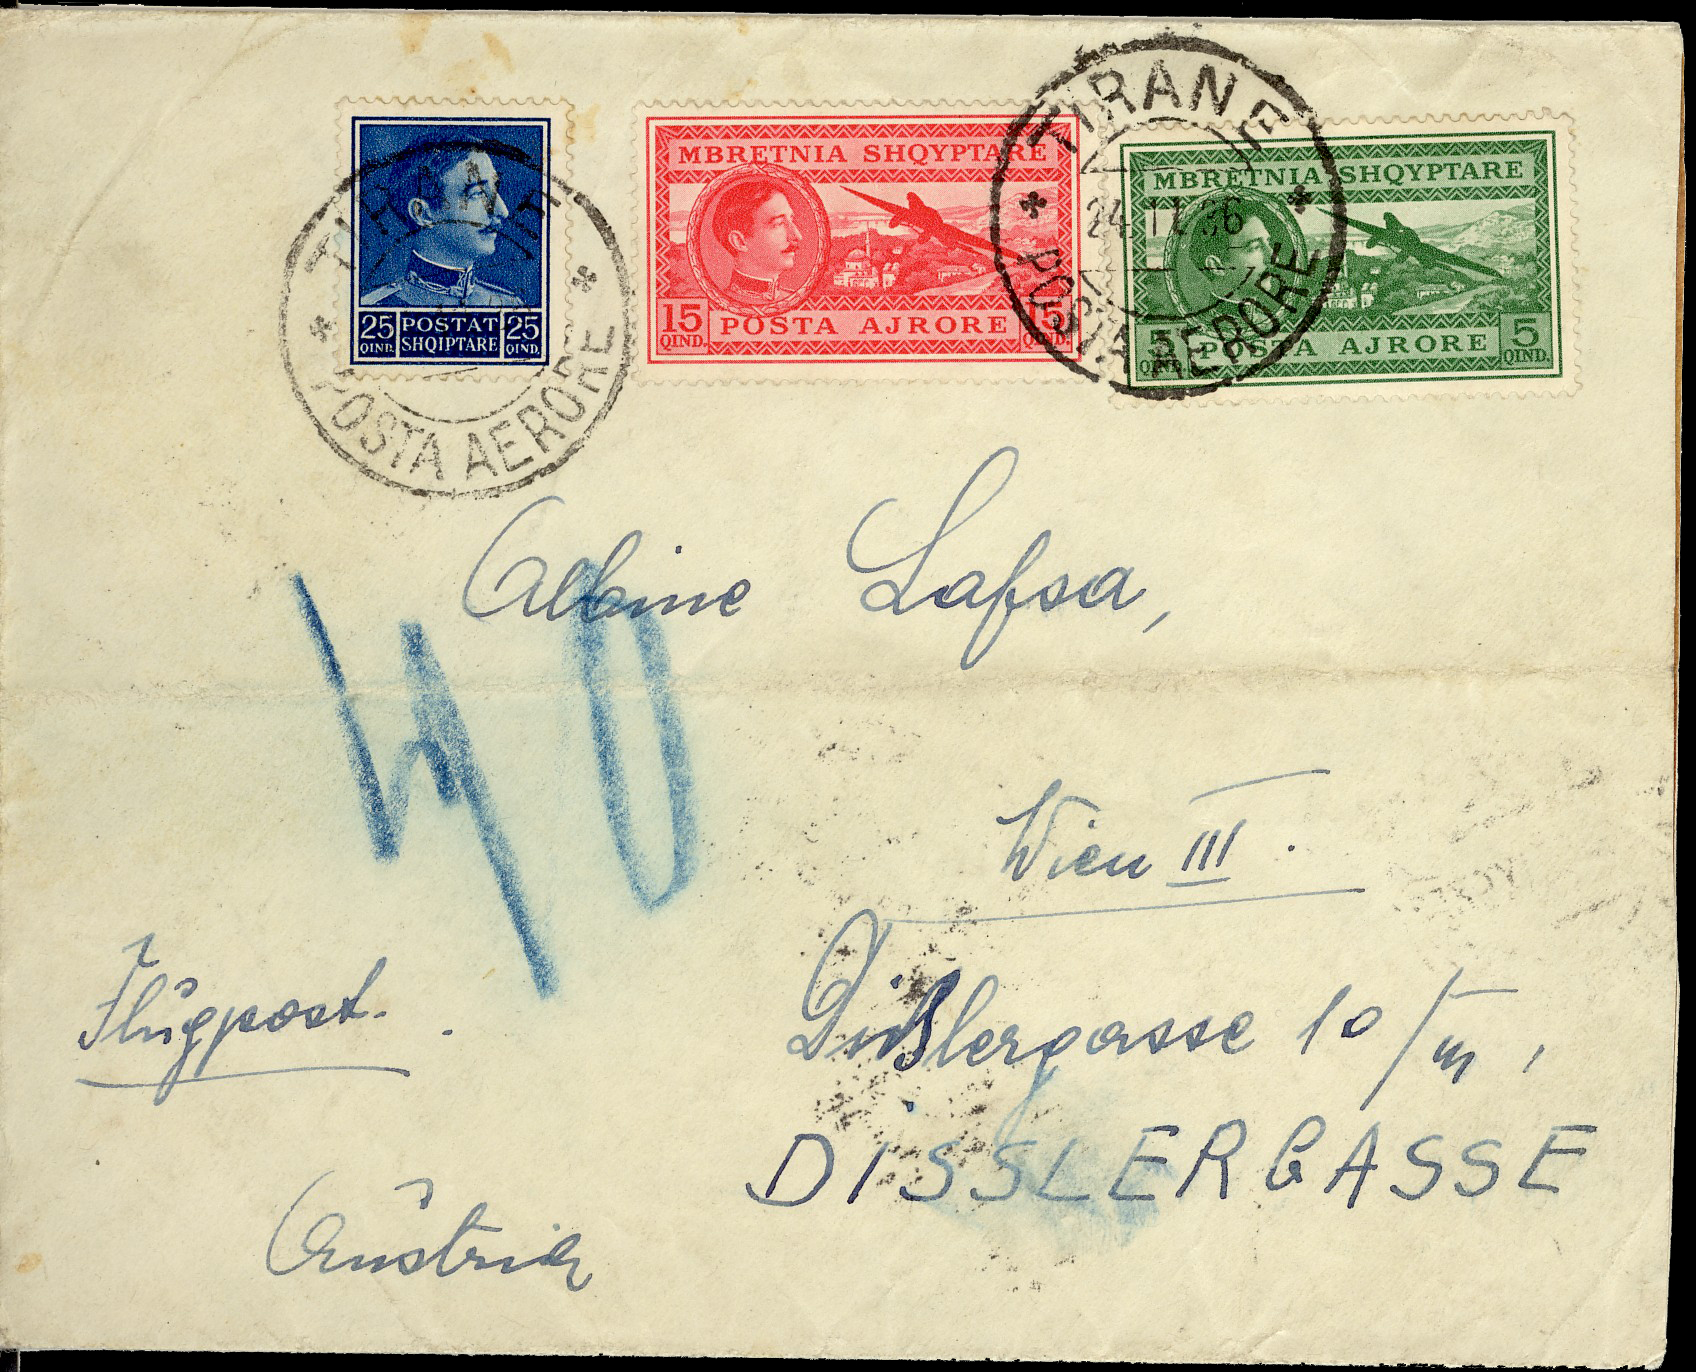 25 QIND. POSTAT SHQIPTARE 25 QIND.
TIRANE
POSTA AERORE
MBRETNIA SHQYPTARE
15 QIND. POSTA AJRORE 15 QIND.
TIRANE
24.11.36
POSTA AERORE
MBRETNIA SHQYPTARE
5 QIND. POSTA AJRORE 5 QIND.
Albine Lafsa,
40
Wien III.
Flugpost.
Dißlergasse 10/III,
DISSLERGASSE
Austria